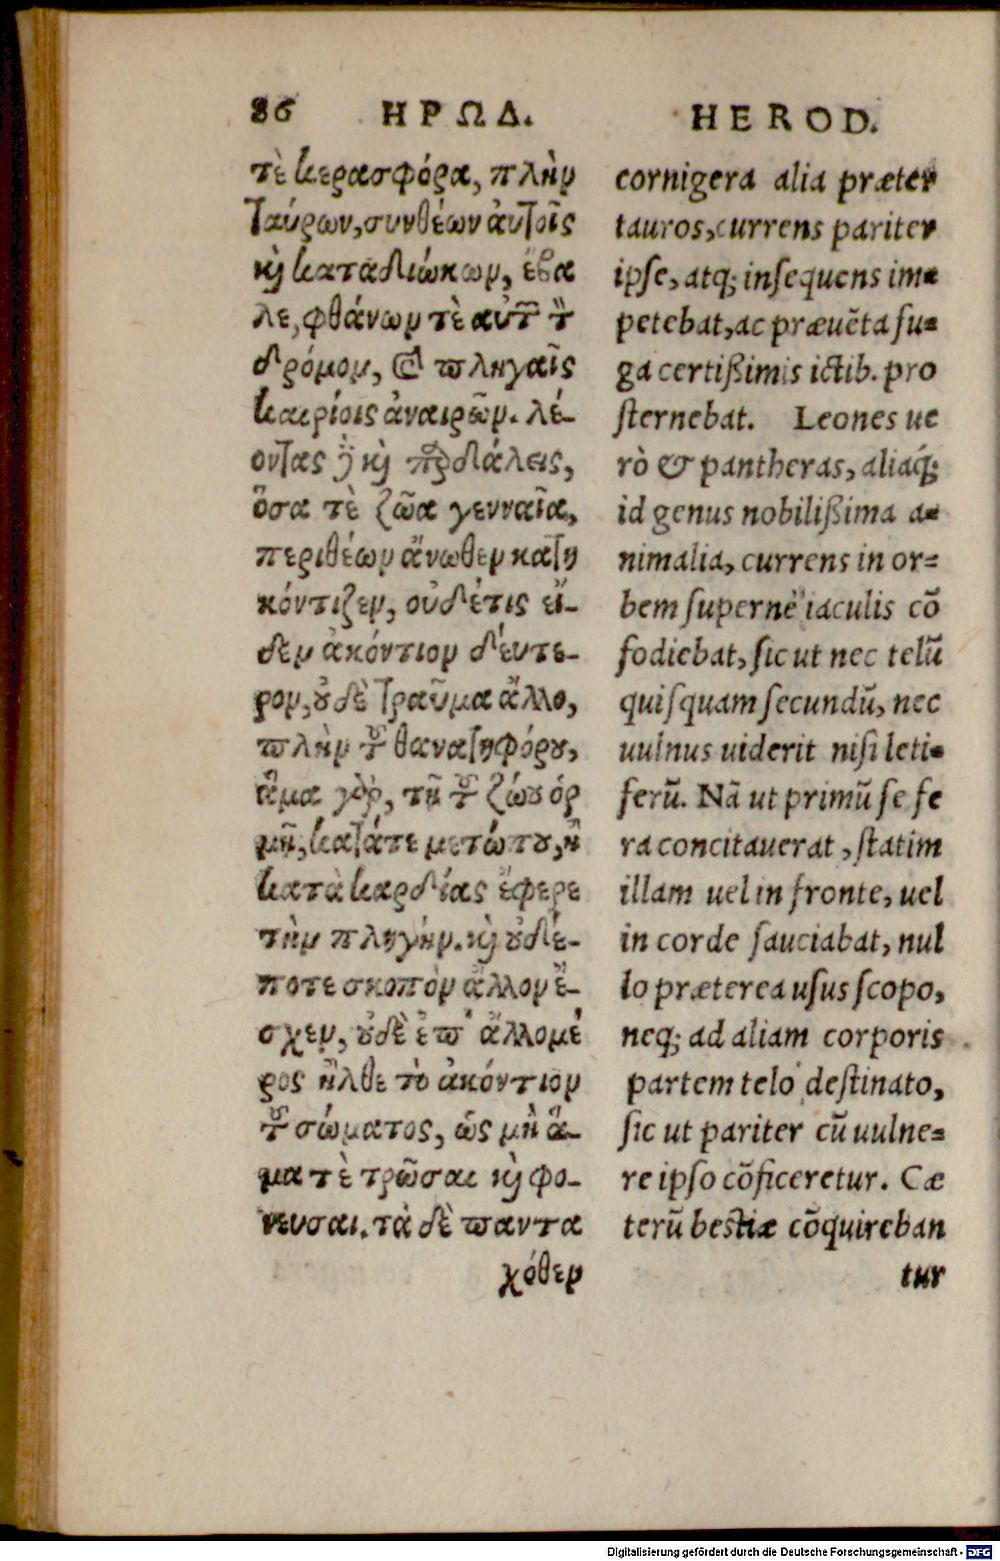 86 ΗΡΩΔ.
τὲ κερασφόρα, πλὴν
ταύρων, συνθέων αὐτοῖς
καὶ καταδιώκων, ἔβα
λε, φθάνων τὲ αὐτῶν τὸν
δρόμον, καὶ πληγαῖς
καιρίοις ἀναιρῶν. λέ-
οντας δὲ καὶ παρδάλεις,
ὅσα τὲ ζῶα γενναῖα,
περιθέων ἄνωθεν κατη
κόντιζεν, οὐδέτις εἶ-
δεν ἀκόντιον δεύτε-
ρον, οὐδὲ τραῦμα ἄλλο,
πλὴν τοῦ θανατηφόρου,
ἅμα γὰρ, τῇ τοῦ ζώου ὁρ
μῇ, κατάτε μετώπου, ἢ
κατὰ καρδίας ἔφερε
τὴν πληγήν. καὶ οὐδέ-
ποτε σκοπὸν ἄλλον ἔ-
σχεν, οὐδὲ ἐπ' ἄλλο μέ
ρος ἦλθε τὸ ἀκόντιον
τοῦ σώματος, ὡς μὴ ἅ-
μα τὲ τρῶσαι καὶ φο-
νευσαι. τὰ δὲ παντα
χόθεν
HEROD.
cornigera alia præter
tauros, currens pariter
ipse, atq; insequens im-
petebat, ac præuẽta fu-
ga certißimis ictib. pro
sternebat. Leones ue
rò & pantheras, aliaq́;
id genus nobilißima a-
nimalia, currens in or-
bem supernè iaculis cõ
fodiebat, sic ut nec telũ
quisquam secundũ, nec
uulnus uiderit nisi leti-
ferũ. Nã ut primũ se fe
ra concitauerat, statim
illam uel in fronte, uel
in corde sauciabat, nul
lo præterea usus scopo,
neq; ad aliam corporis
partem telo destinato,
sic ut pariter cũ uulne-
re ipso cõficeretur. Cæ
terũ bestiæ cõquireban
tur
Digitalisierung gefördert durch die Deutsche Forschungsgemeinschaft - DFG